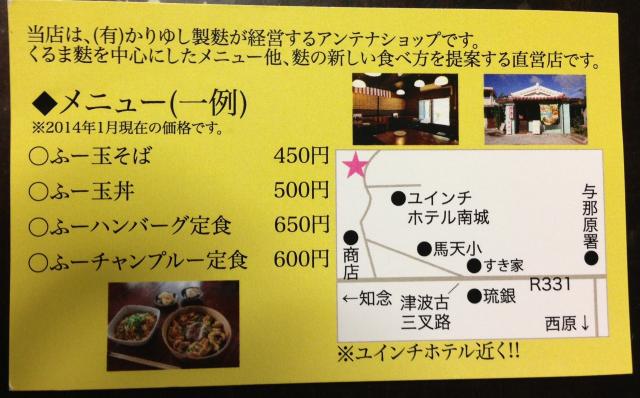 当店は、(有)かりゆし製麩が経営するアンテナショップです。
くるま麩を中心にしたメニュー他、麩の新しい食べ方を提案する直営店です。
◆メニュー(一例)
※2014年1月現在の価格です。
○ふー玉そば 450円
○ふー玉丼 500円
○ふーハンバーグ定食 650円
○ふーチャンプルー定食 600円
★
●ユインチ
ホテル南城
与那原署
●
●馬天小
●
商店
●すき家
R331
←知念
津波古
三叉路
●琉銀
西原↓
※ユインチホテル近く!!